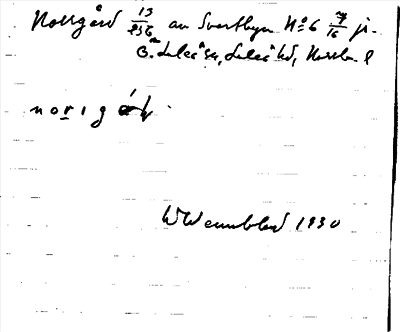 Norrgård 13/256 av Svartbyn Nº 6 7/16 ji-
Ö. Luleå sn, Luleå hd, Norrb. l
norigåɖ.
W Wennblad 1930